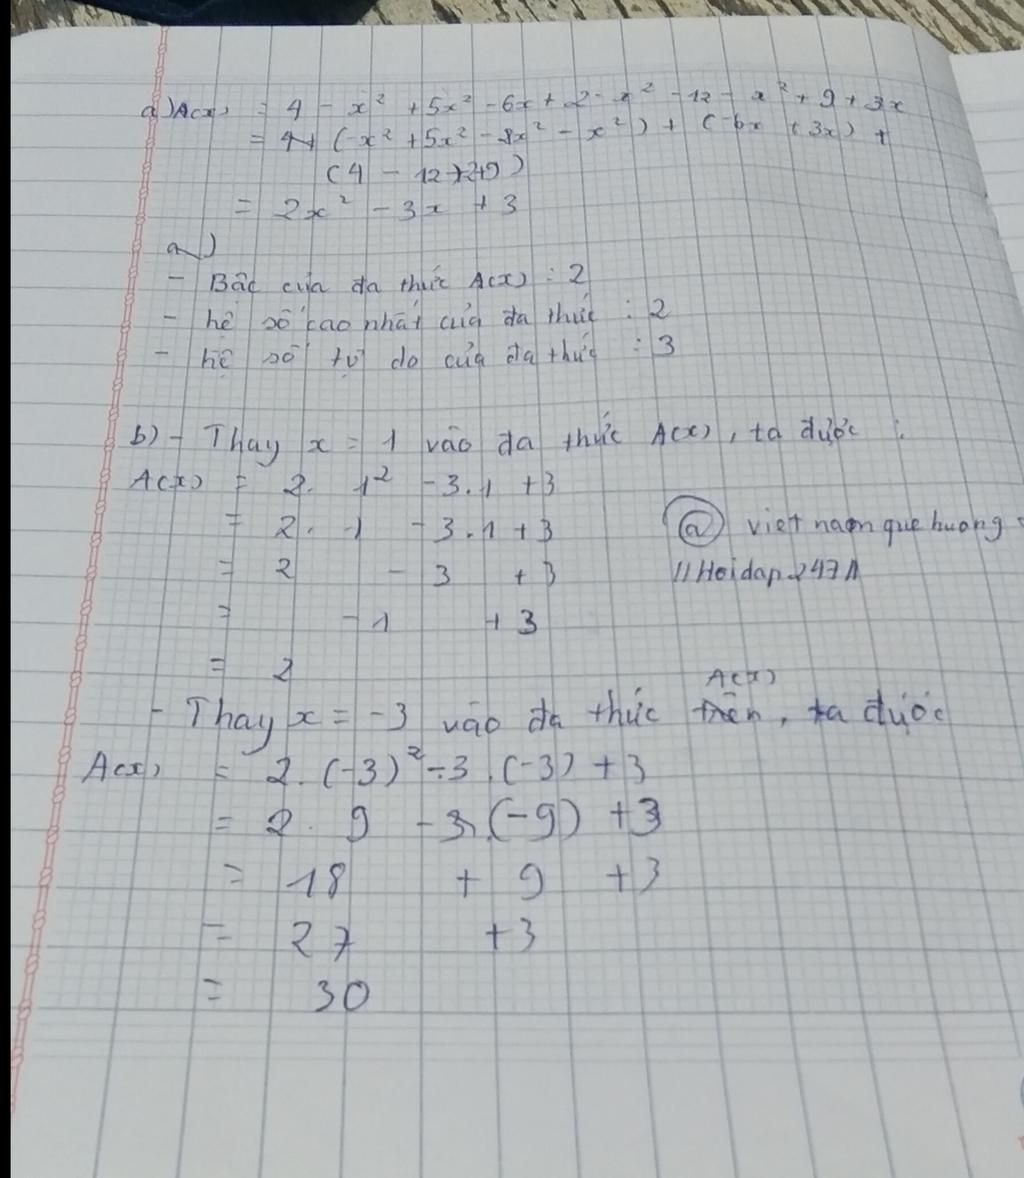 a) A(x) = 4 - x² + 5x² - 6x + 2 - x² - 12 - x² + 9 + 3x
= 4 + (-x² + 5x² - x² - x²) + (-6x + 3x) +
(4 - 12 + 2 + 9)
= 2x² - 3x + 3
a)
- Bậc của đa thức A(x) : 2
- hệ số cao nhất của đa thức : 2
- hệ số tự do của đa thức : 3
b) - Thay x = 1 vào đa thức A(x), ta được :
A(x) = 2. 1² - 3.1 + 3
= 2. 1 - 3.1 + 3
= 2 - 3 + 3
= -1 + 3
= 2
@ viet nam que huong
//Hoidap247//
A(x)
- Thay x = -3 vào đa thức trên, ta được
A(x) = 2. (-3)² - 3.(-3) + 3
= 2. 9 - 3.(-9) + 3
= 18 + 9 + 3
= 27 + 3
= 30